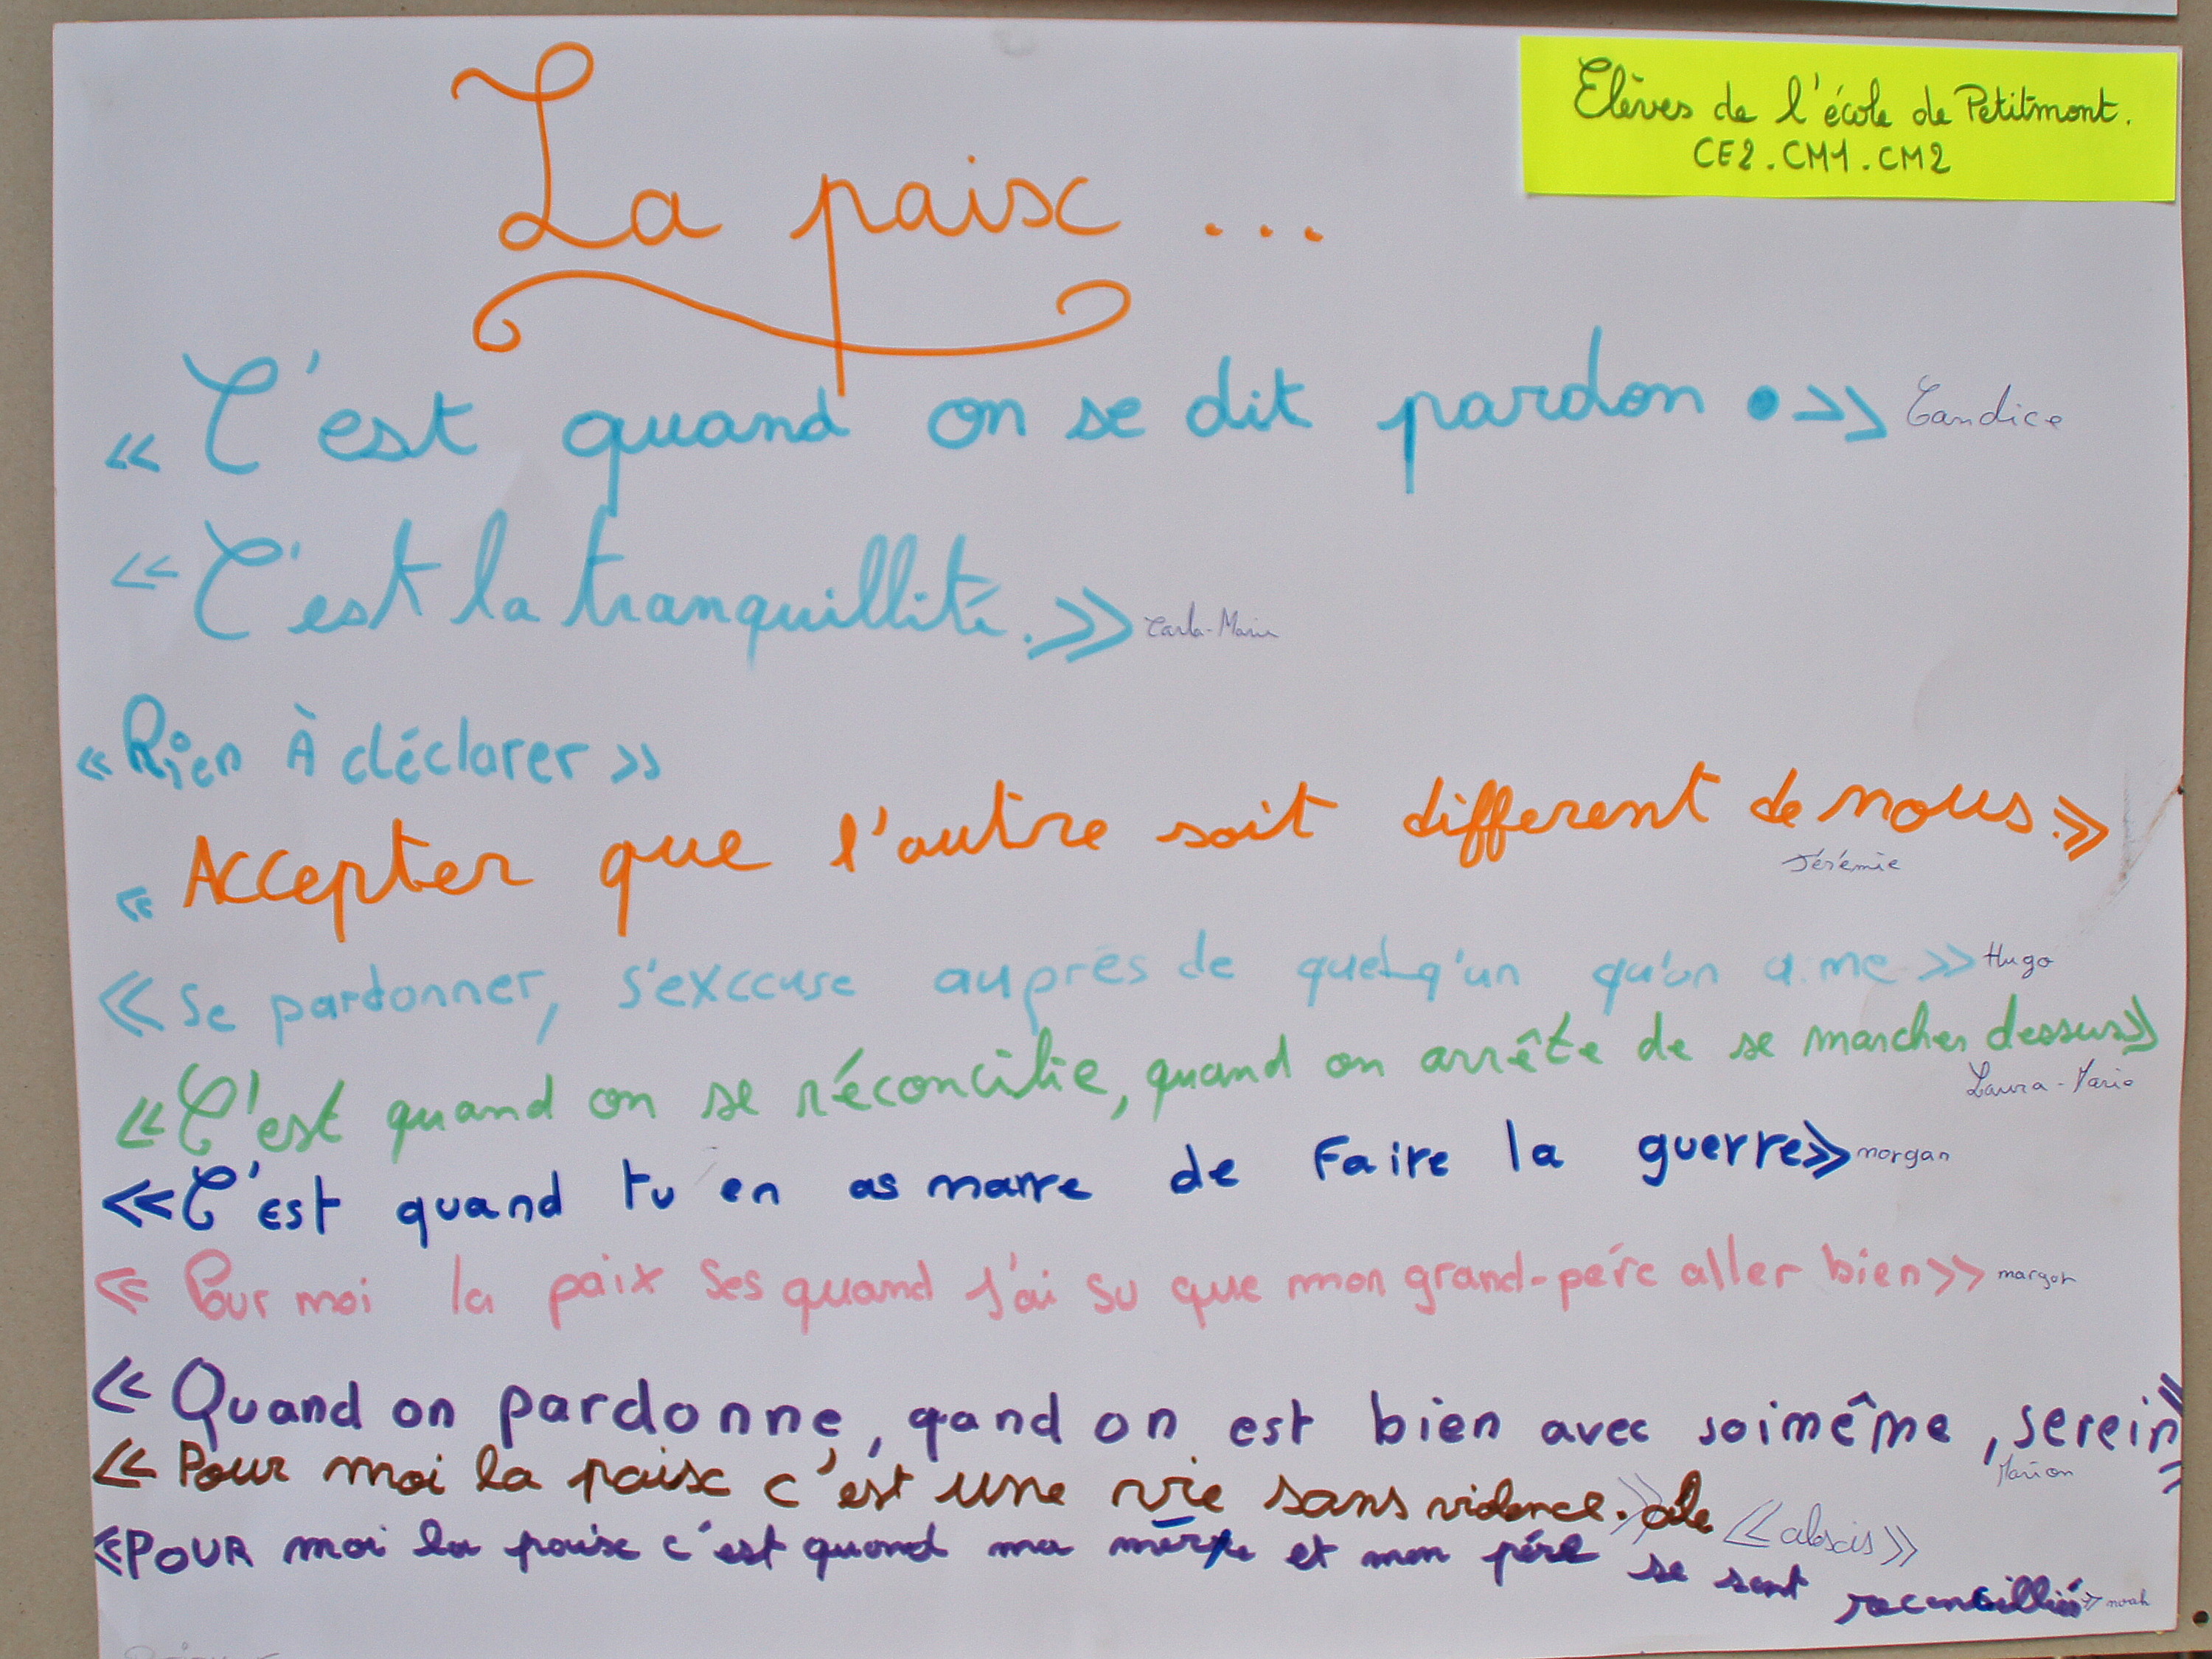 Elèves de l'école de Petitmont.
CE2.CM1.CM2
La paix ...
« C'est quand on se dit pardon .» Candice
« C'est la tranquillité.» Carla-Marie
« Rien À déclarer »
« Accepter que l'autre soit different de nous.»
Jérémie
« Se pardonner, s'exccuse auprés de quelqu'un qu'on aime » Hugo
« C'est quand on se réconcilie, quand on arrête de se marcher dessus»
Laura-Marie
« C'est quand tu en as marre de Faire la guerre» morgan
« Pour moi la paix Ses quand J'ai su que mon grand-pére aller bien» margot
« Quand on pardonne, qand on est bien avec soimême, serein»
Marion
« Pour moi la paix c'est une vie sans violence.» « alexis »
«POUR moi la paix c'est quand ma mère et mon pére se sont reconcilliés» noah